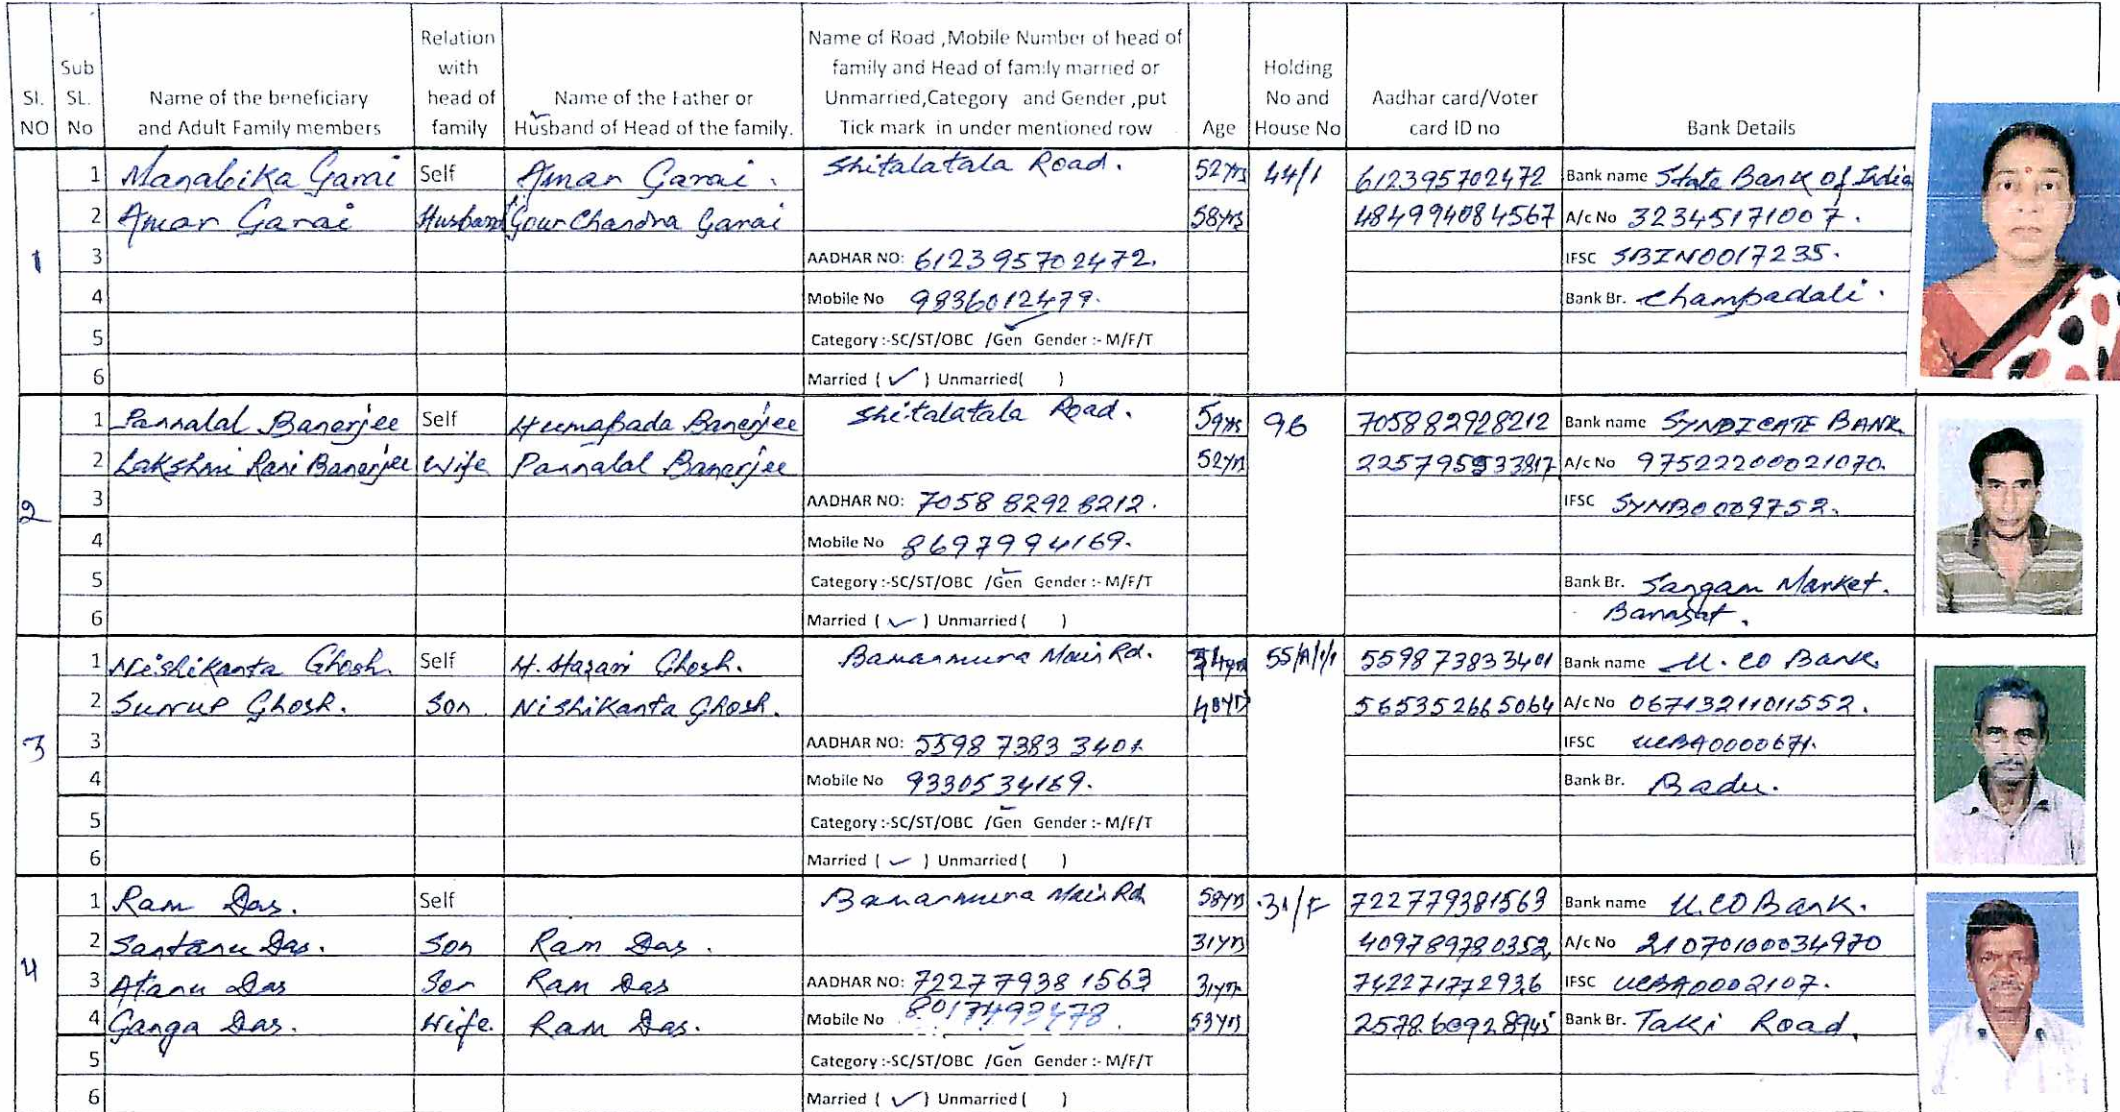 Sl. NO | Sub SL. No | Name of the beneficiary and Adult Family members | Relation with head of family | Name of the Father or Husband of Head of the family. | Name of Road ,Mobile Number of head of family and Head of family married or Unmarried,Category and Gender ,put Tick mark in under mentioned row | Age | Holding No and House No | Aadhar card/Voter card ID no | Bank Details
1
1 Manabika Garai Self Amar Garai. Shitalatala Road. 52yrs 44/1 612395702472 Bank name State Bank of India
2 Amar Garai Husband Gour Chandra Garai 58yrs 484994084567 A/c No 32345171007.
3 AADHAR NO: 612395702472. IFSC SBIN0017235.
4 Mobile No 9836012479. Bank Br. Champadali.
5 Category :-SC/ST/OBC /Gen Gender :- M/F/T
6 Married ( ✓ ) Unmarried( )
2
1 Pannalal Banerjee Self Banerjee Shitalatala Road. 59yrs 96 705882928212 Bank name SYNDICATE BANK
2 Lakshmi Rani Banerjee Wife Pannalal Banerjee 52yrs A/c No 97522200021070.
3 AADHAR NO: 7058 8292 8212. IFSC SYNB0009752.
4 Mobile No 8697994169.
5 Category :-SC/ST/OBC /Gen Gender :- M/F/T Bank Br. Sangam Market.
6 Married ( ✓ ) Unmarried ( ) Barasat.
3
1 Nishikanta Ghosh. Self H. Hazari Ghosh. Bamanmura Main Rd. 55/A/1/1 559873833401 Bank name U.CO Bank.
2 Ghosh. Son Nishikanta Ghosh. 565352665064 A/c No 06713211011552.
3 AADHAR NO: 5598 7383 3401 IFSC UCBA0000671.
4 Mobile No 9330534169. Bank Br. Badu.
5 Category :-SC/ST/OBC /Gen Gender :- M/F/T
6 Married ( ✓ ) Unmarried ( )
4
1 Ram Das. Self Bamanmura Main Rd 58yrs 31/F 722779381563 Bank name U.CO Bank.
2 Santanu Das. Son Ram Das. 31yrs 409789780352 A/c No 21070100034970
3 Atanu Das Son Ram Das AADHAR NO: 72277938 1563 31yrs 742271772936 IFSC UCBA0002107.
4 Ganga Das. Wife. Ram Das. Mobile No 8017493478. 53yrs 257860928945 Bank Br. Taki Road.
5 Category :-SC/ST/OBC /Gen Gender :- M/F/T
6 Married ( ✓ ) Unmarried ( )